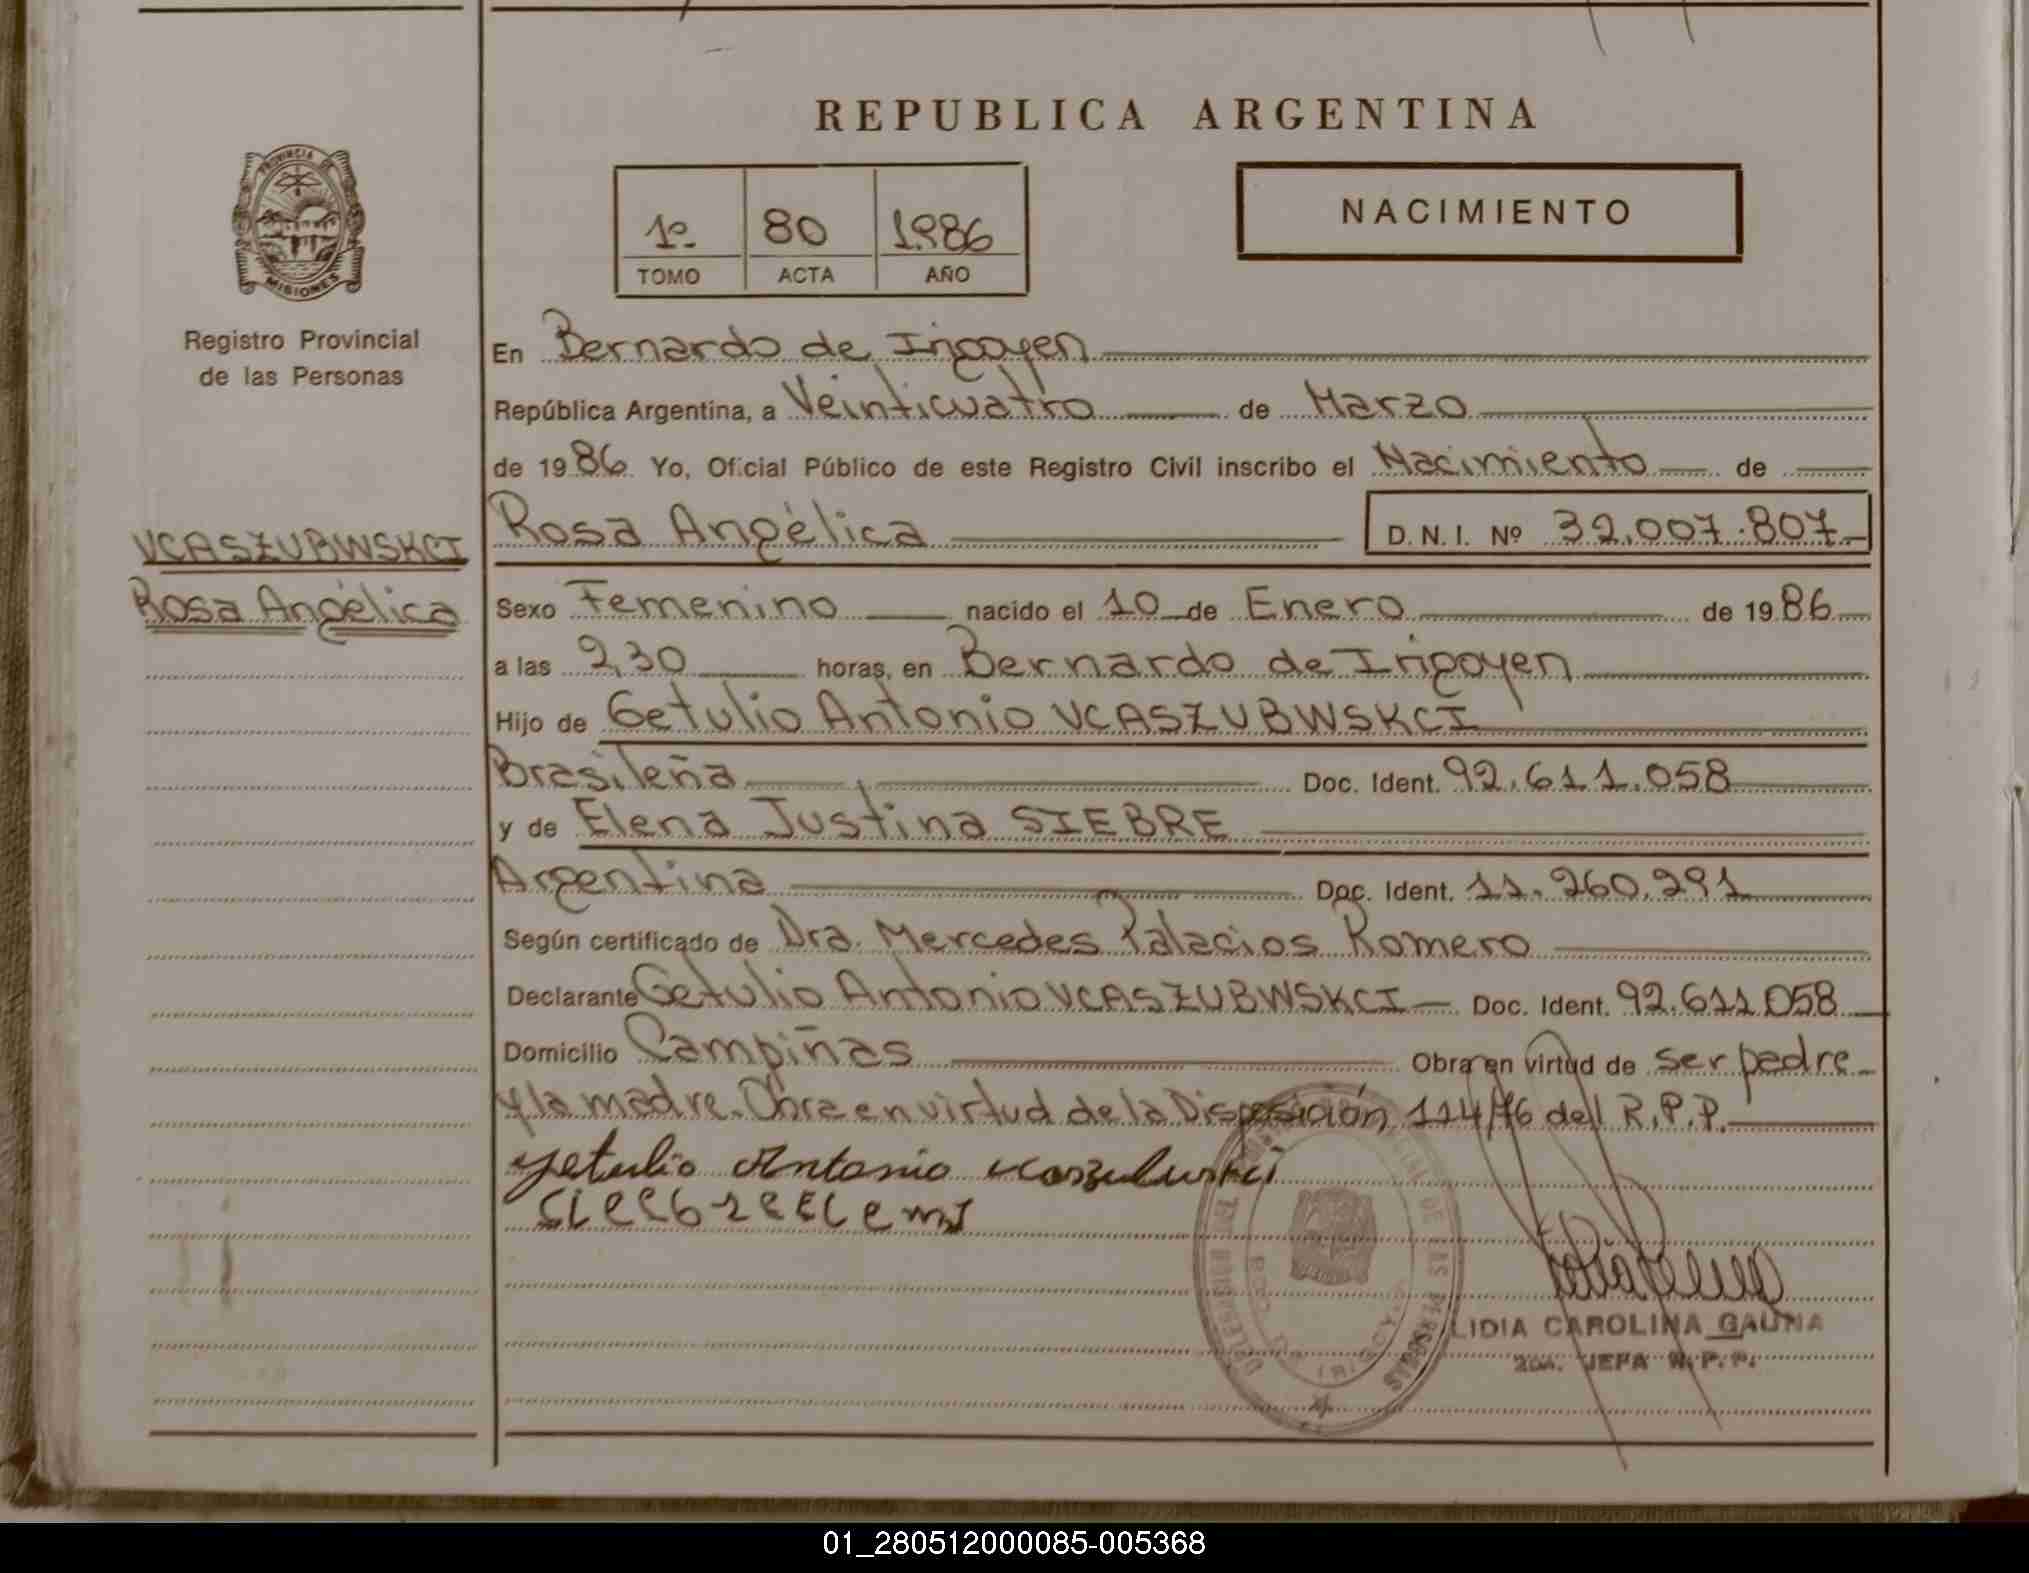 REPUBLICA ARGENTINA
PROVINCIA DE
MISIONES
Registro Provincial
de las Personas
1º 80 1986
TOMO ACTA AÑO
NACIMIENTO
En Bernardo de Irigoyen
República Argentina, a Veinticuatro de Marzo
de 1986. Yo, Oficial Público de este Registro Civil inscribo el Nacimiento de
VCASZUBWSKCI
Rosa Angélica
Rosa Angélica D. N. I. Nº 32.007.807
Sexo Femenino nacido el 10 de Enero de 1986
a las 2,30 horas, en Bernardo de Irigoyen
Hijo de Getulio Antonio VCASZUBWSKCI
Brasileña Doc. Ident. 92.611.058
y de Elena Justina SIEBRE
Argentina Doc. Ident. 11.260.291
Según certificado de Dra. Mercedes Palacios Romero
Declarante Getulio Antonio VCASZUBWSKCI Doc. Ident. 92.611.058
Domicilio Campiñas Obra en virtud de ser padre
y la madre. Obra en virtud de la Disposición 114/76 del R.P.P.
Getulio Antonio
LIDIA CAROLINA GAUNA
JEFA R.P.P.
01_280512000085-005368